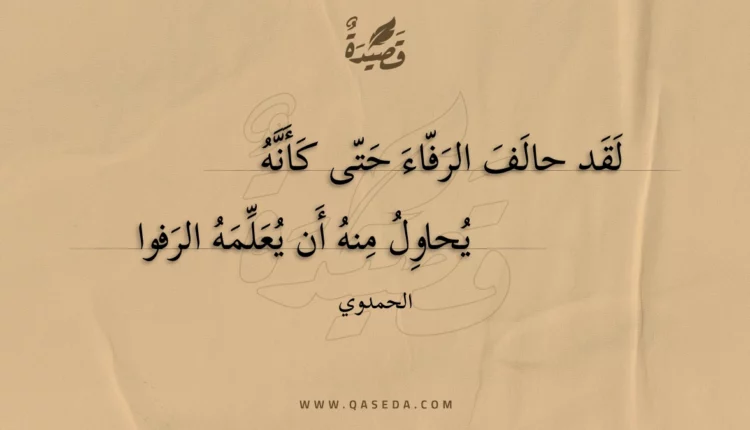 قَصِيدَةٌ
لَقَد حالَفَ الرَفّاءَ حَتّى كَأَنَّهُ
يُحاوِلُ مِنهُ أَن يُعَلِّمَهُ الرَفوا
الحمدوي
WWW.QASEDA.COM